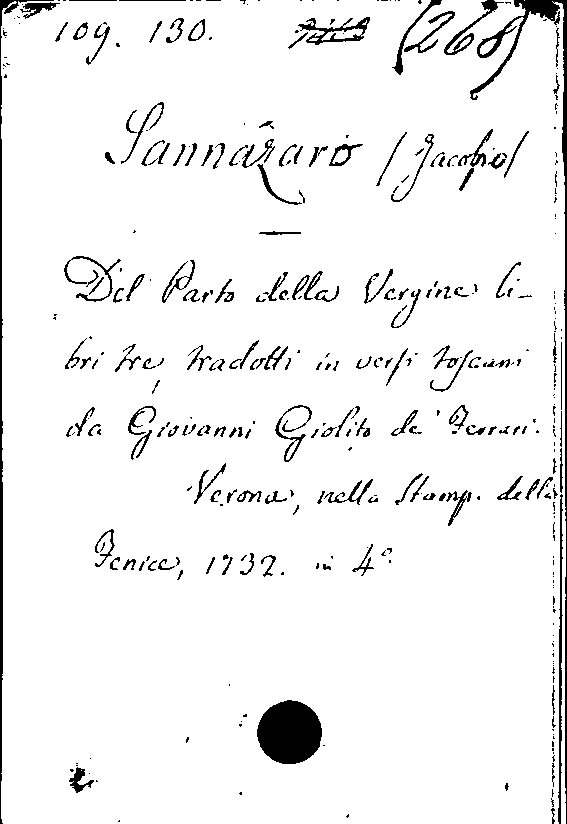 109. 130. (268)
Sannazaro /Jacopo/
Del Parto della Vergine li-
bri tre, tradotti in versi toscani
da Giovanni Giolito de' Ferrari.
Verona, nella Stamp. della
Fenice, 1732. in 4°